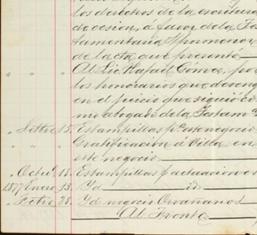 los derechos de la escritura
de cesion, á favor de la Tes
tamentaria
de lacta que presentó
Al Lic. Rafael Gomez, por
los honorarios que deveng
en el juicio que siguió co
mo abogado de la Testam
" Setbre 15. Estampillas pa este negocio
Gratificacion á Villa en
este negocio
" Octbre 11. Estampillas pa actuacion en
1877 Enero 13. Yd id.
" Febro 28. Yd negocio
Al Frente